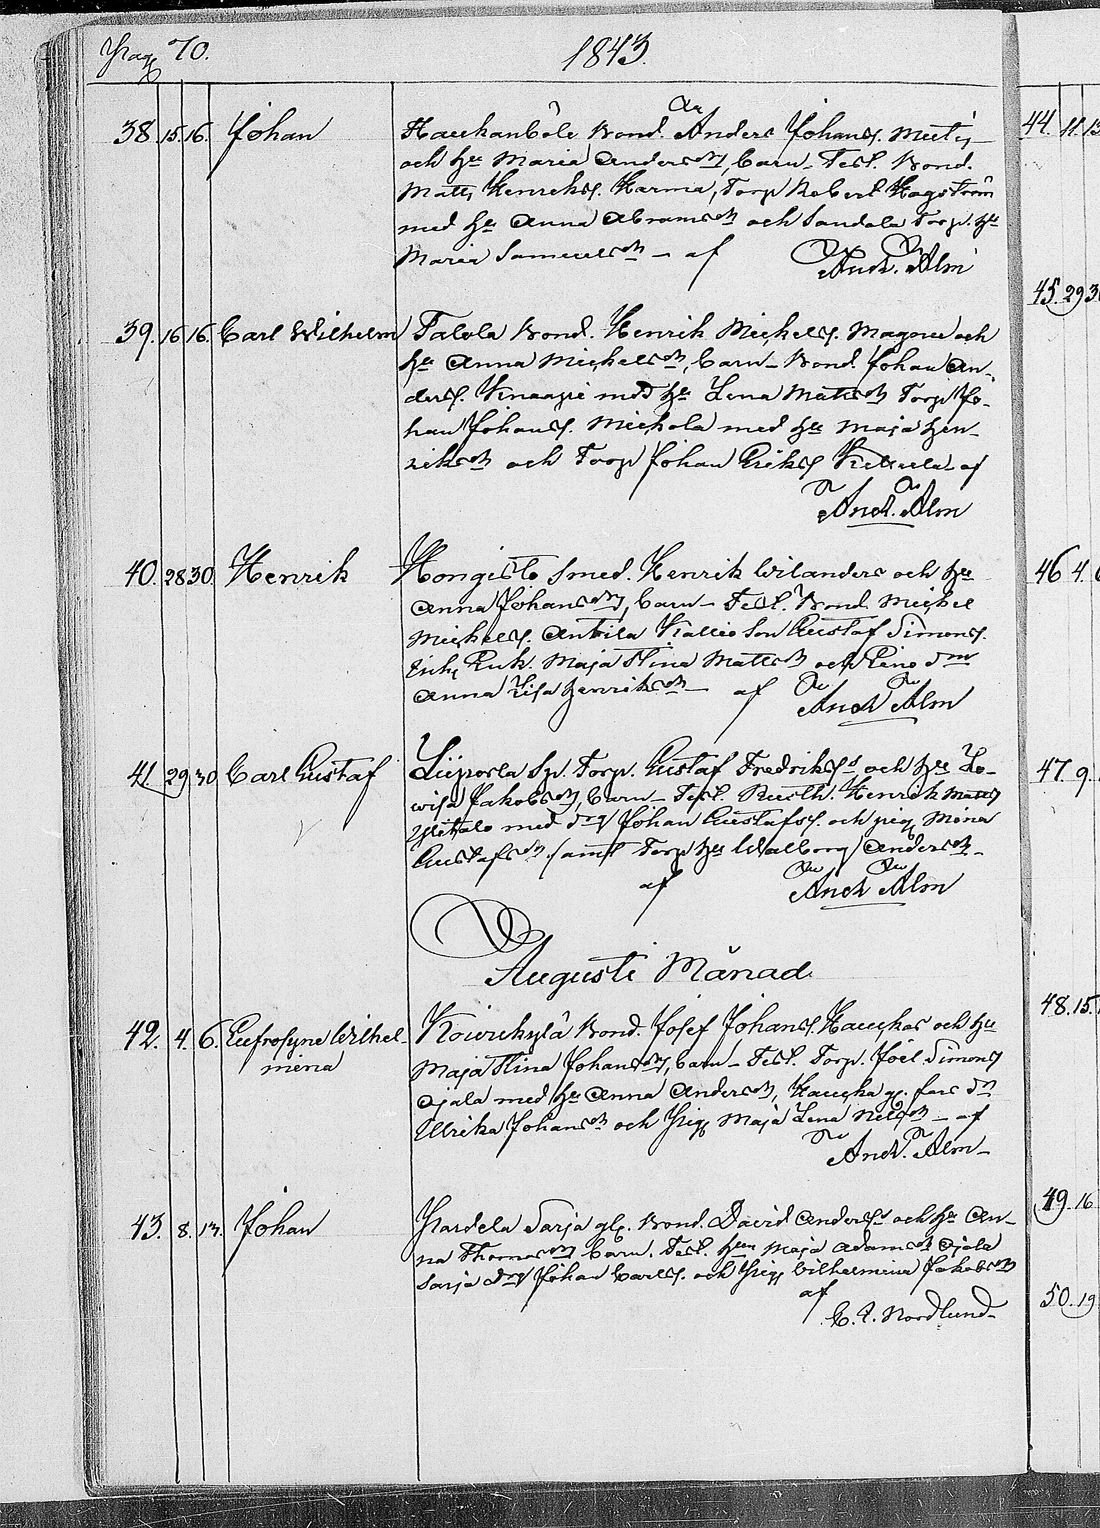 Pag. 70. 1843.
38. 15. 16. Johan Haukanböle Bond. Anders Johans. Meeti,
och hu Maria Andersdr, barn – Test. Bond.
Matts Henriks. Karma, Torp Robert Hagström
med hu Anna Abramsdr och Sandala Torp. hu
Maria Samuelsdr – af And. Alm
39. 16. 16. Carl Wilhelm Talola Bond. Henrik Michels. Magnu och
hu Anna Michelsdr, barn – Bond. Johan An-
ders. med hu Lena Mattsdr Torp Jo-
han Johans. Mickola med hu Maja Hen-
riksdr och Torp Johan Eriks. af
And. Alm
40. 28 30. Henrik Hongisto Smed. Henrik Wilanders och hu
Anna Johansdr, barn – Test. Bond. Michel
Michels. Anttila Kallio Son Gustaf Simons.
Enk. Maja Stina Mattsdr och
Anna Lisa Henriksdr – af And Alm
41. 29 30 Carl Gustaf Liiporla Sp. Torp. Gustaf Fredriks. och hu Lo-
wisa Jakobsdr, barn – Test. Rusth. Henrik Matts
Ylitalo med drg Johan Gustafs. och pig. Mona
Gustafsdr. samt Torp hu Walborg Andersdr –
af And Alm
Augusti Månad
42. 4. 6. Eufrosyne Wilhel- Koivukylä Bond. Josef Johans. Hauhas och hu
mina Maja Stina Johansdr, barn – Test. Torp. Joel Simons
Ojala med hu Anna Andersdr, Hauka gl. fars dr
Ulrika Johansdr och Pig. Maja Lena Nelsdr – af
And. Alm –
43. 8. 13. Johan Pardela Sarja gl. Bond. David Anders. och hu An-
na Thomasdr barn. Test. Maja Adamsdr Ojala
Sarja drg Johan Carls. och Pig. Wilhelmina Jakobsdr
af
C. I. Nordlund –
44. 11. 13
45. 29 3
46 4. 6
47. 9.
48. 15.
49. 16
50. 19